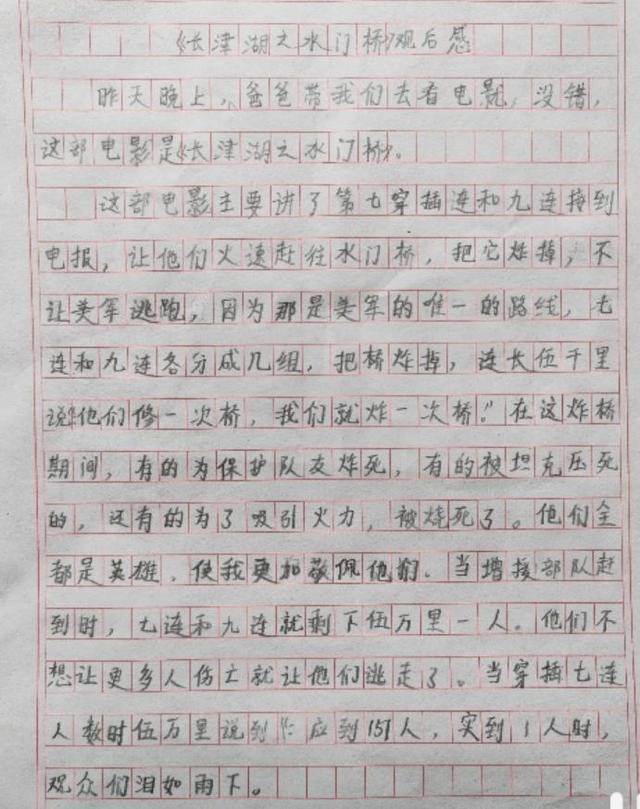 《长津湖之水门桥》观后感
昨天晚上，爸爸带我们去看电影，没错，
这部电影是《长津湖之水门桥》。
这部电影主要讲了第七穿插连和九连接到
电报，让他们火速赶往水门桥，把它炸掉，不
让美军逃跑，因为那是美军的唯一的路线，七
连和九连各分成几组，把桥炸掉，连长伍千里
说“他们修一次桥，我们就炸一次桥！”在这炸桥
期间，有的为保护队友炸死，有的被坦克压死
的，还有的为了吸引火力，被烧死了。他们全
都是英雄，使我更加敬佩他们。当增接部队赶
到时，七连和九连就剩下伍万里一人。他们不
想让更多人伤亡就让他们逃走了。当穿插七连
人数时伍万里说到“应到151人，实到1人时，
观众们泪如雨下。